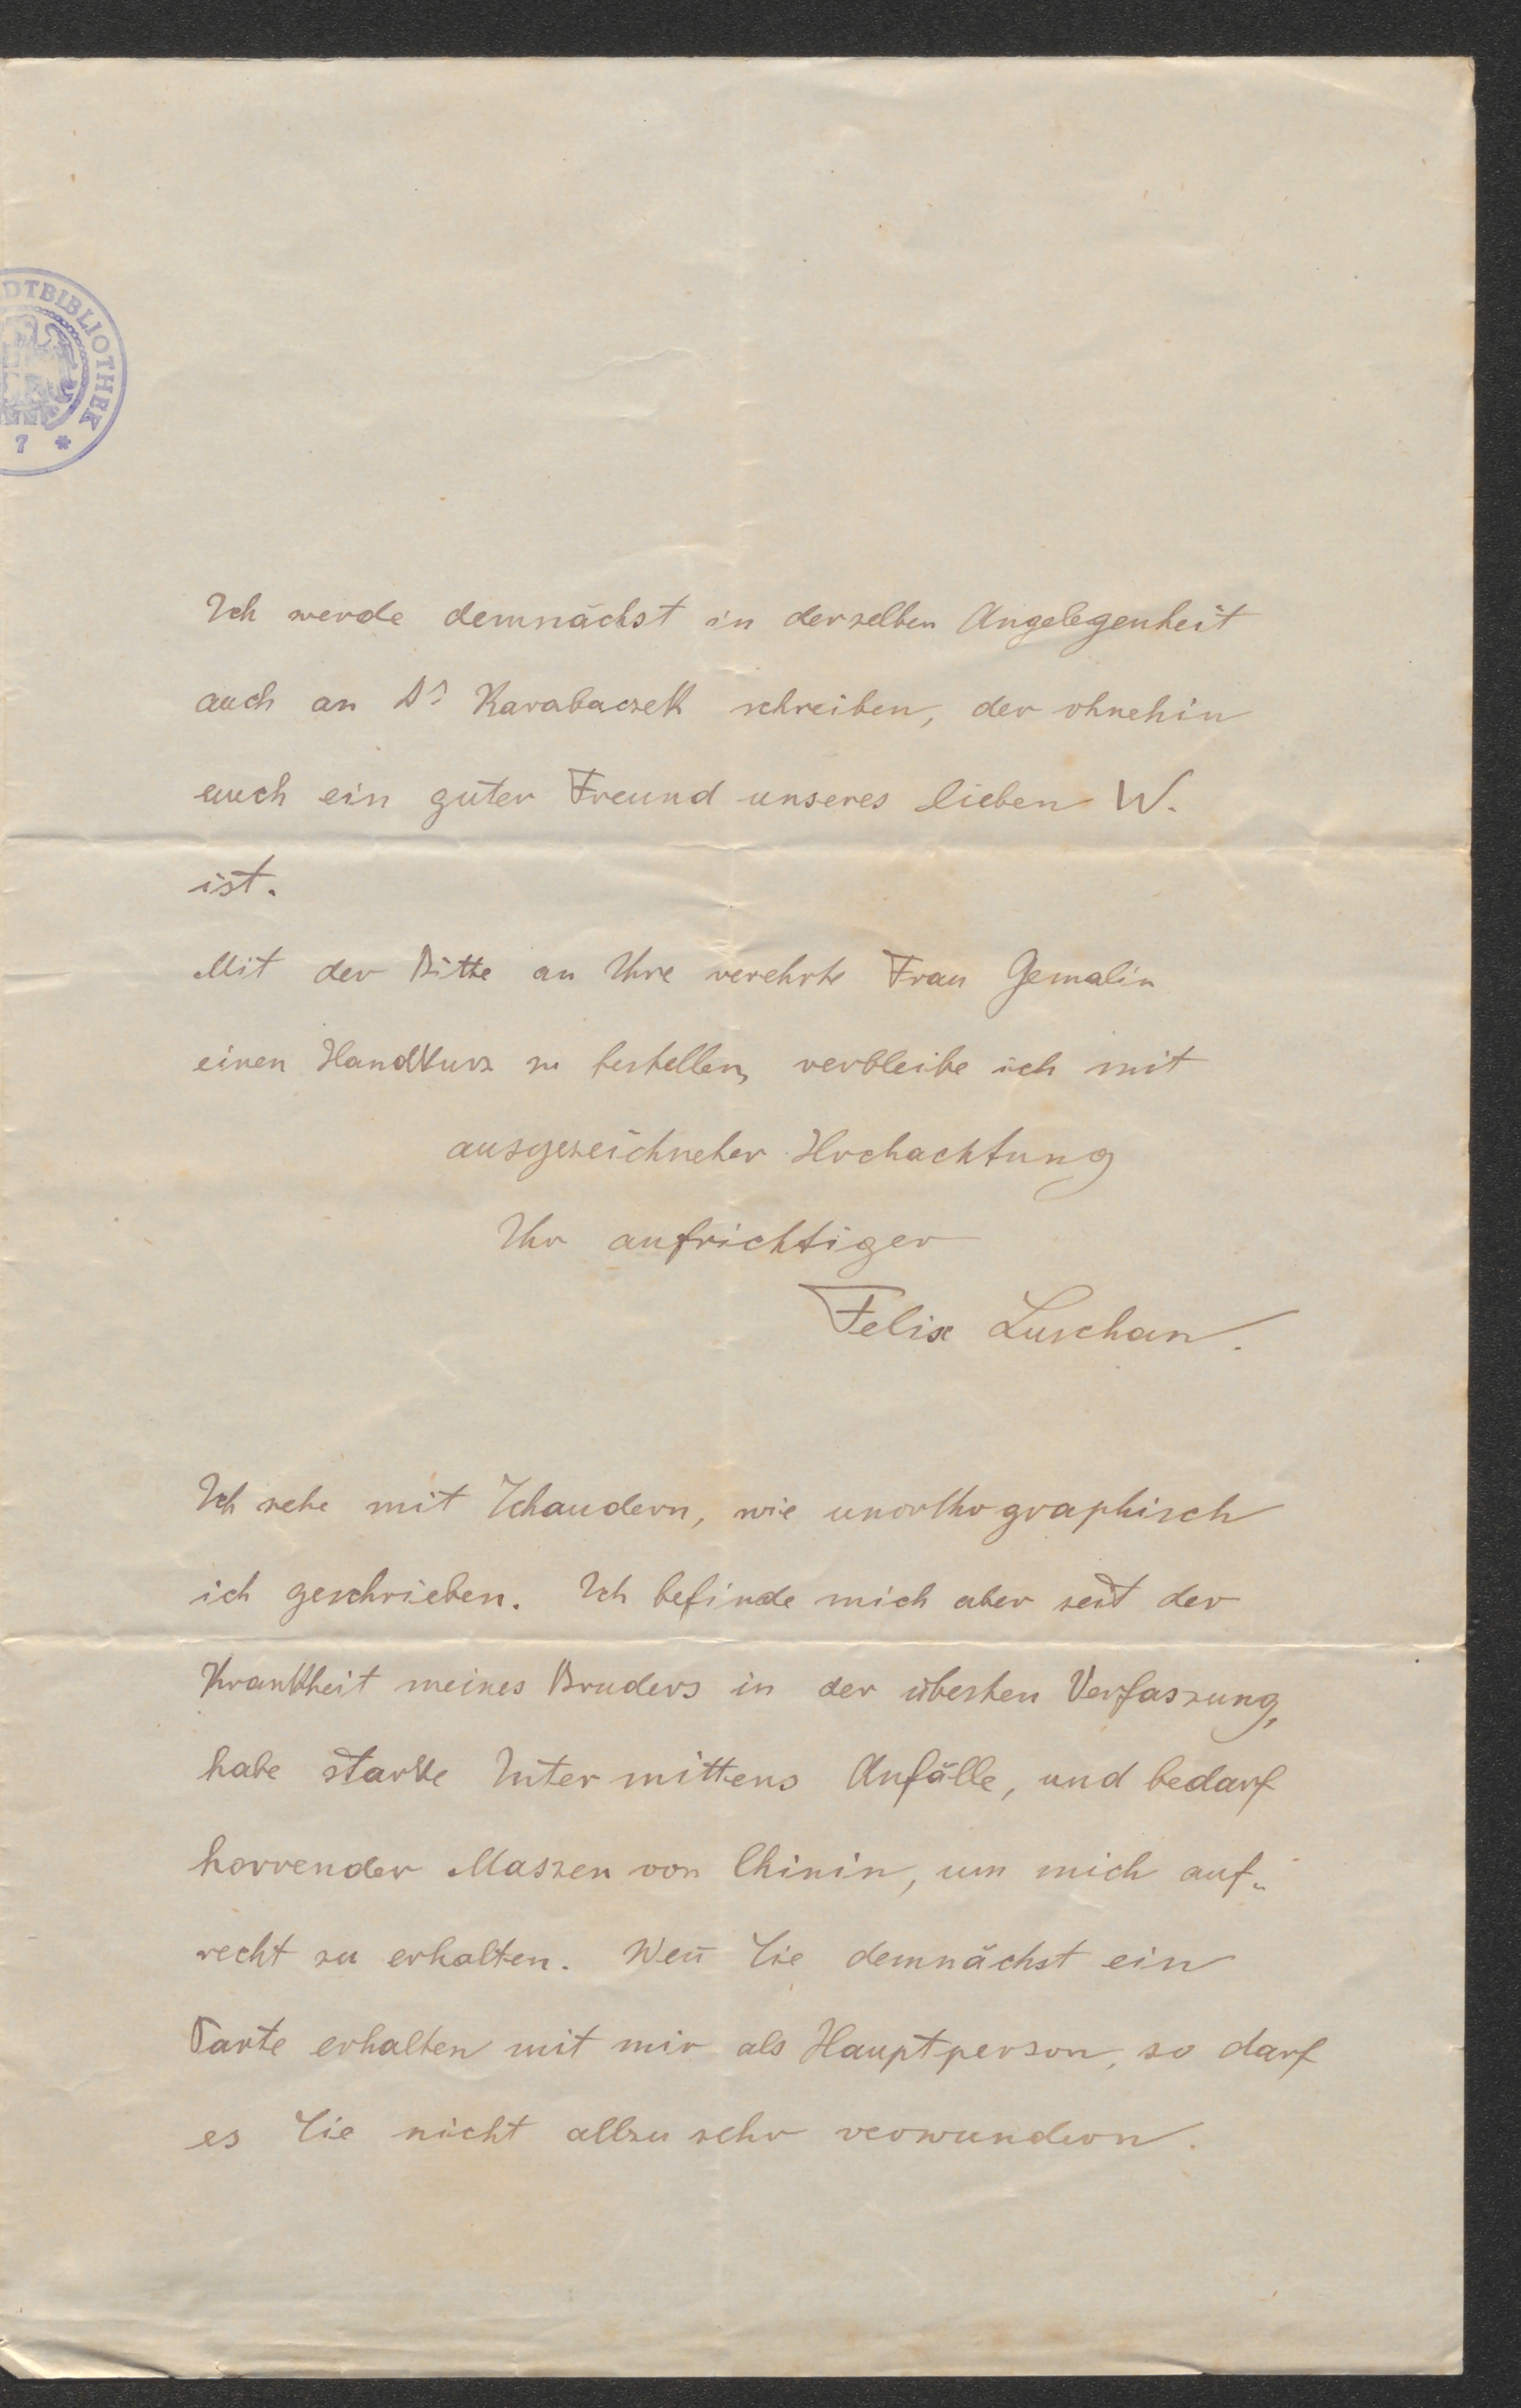 DTBIBLIOTHEK
7 *
Ich werde demnächst in derselben Angelegenheit
auch an Dr Karabaczek schreiben, der ohnehin
auch ein guter Freund unseres lieben W.
ist.
Mit der Bitte an Ihre verehrte Frau Gemalin
einen Handkuss zu bestellen, verbleibe ich mit
ausgezeichneter Hochachtung
Ihr aufrichtiger
Felix Luschan.
Ich sehe mit Schaudern, wie unorthographisch
ich geschrieben. Ich befinde mich aber seit der
Krankheit meines Bruders in der übesten Verfassung,
habe starke Intermittens Anfälle, und bedarf
horrender Massen von Chinin, um mich auf-
recht zu erhalten. Wen̄ Sie demnächst ein
Parte erhalten mit mir als Hauptperson, so darf
es Sie nicht allzu sehr verwundern.